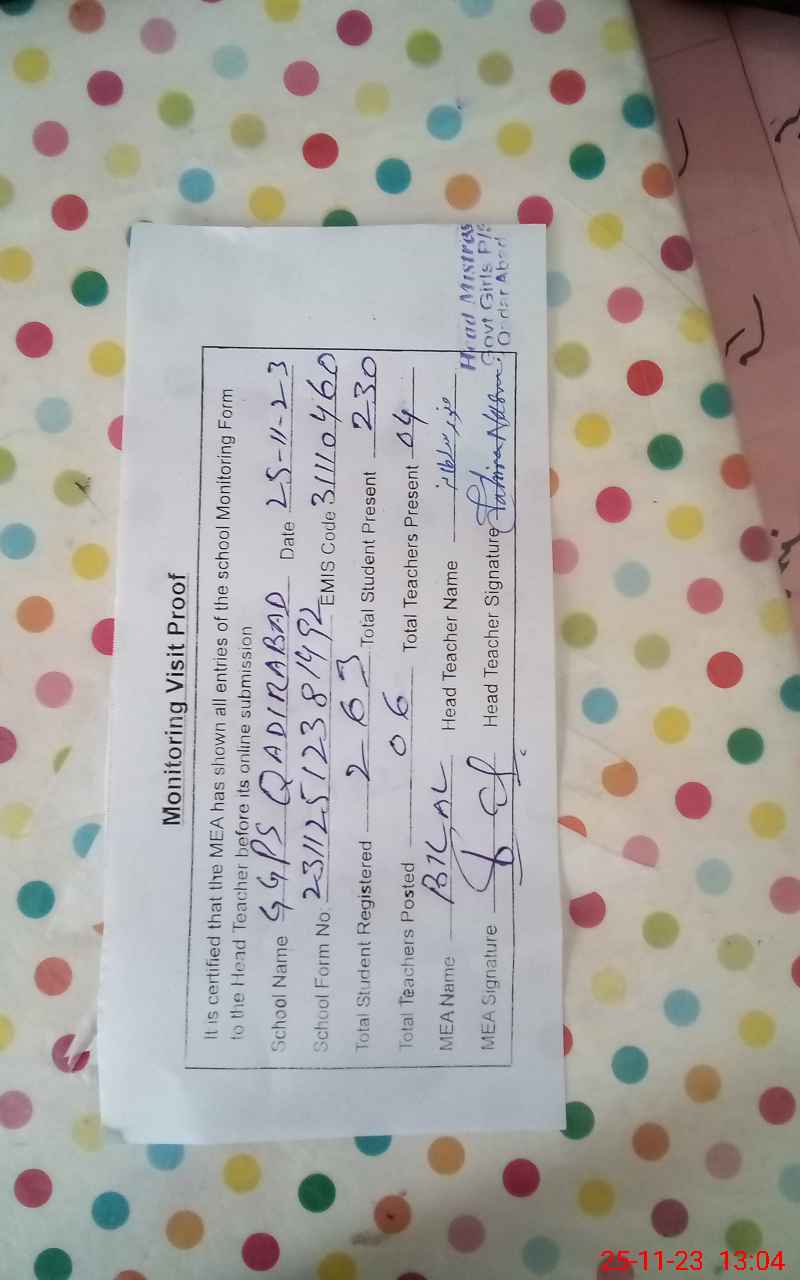 Monitoring Visit Proof
It is certified that the MEA has shown all entries of the school Monitoring Form
to the Head Teacher before its online submission
School Name GGPS QADIRABAD Date 25-11-23
School Form No: 23112512381492 EMIS Code 31110460
Total Student Registered 263 Total Student Present 230
Total Teachers Posted 06 Total Teachers Present 04
MEA Name BILAL Head Teacher Name
MEA Signature Head Teacher Signature
Head Mistress
Govt Girls P/S
Abad
25-11-23 13:04